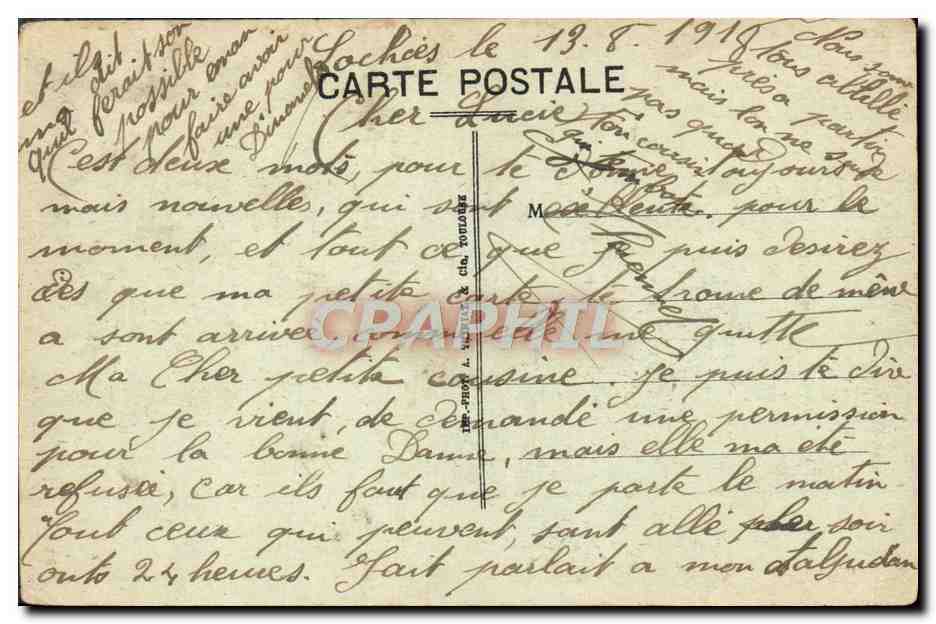 Loches le 13. 8. 1918
CARTE POSTALE
Cher Lucie
C'est deux mots, pour te donne toujours de
mais nouvelles, qui sont exellente. pour le
moment, et tout ce que je puis desirez
cès que ma petite carte, te trouve de même
a sont arrivée comme elle me quitte
Ma Cher petite cousine. je puis te dire
que je vient, de demandé une permission
pour la bonne Danne, mais elle ma été
refusée, car ils faut que je parte le matin
Tout ceux qui peuvent, sont allé hier soir
onts 24 heures. Jait parlait a mon
et il
ma dit
quil ferait son
possible
pour man
faire avoir
une pour
Dimanche
Nous some
tous abillé
près a partir
mais lon ne sait
pas quand
Ton cousin
qui
M
IMP.-PHOT. A. & Cie, TOULOUSE
CPAPHIL